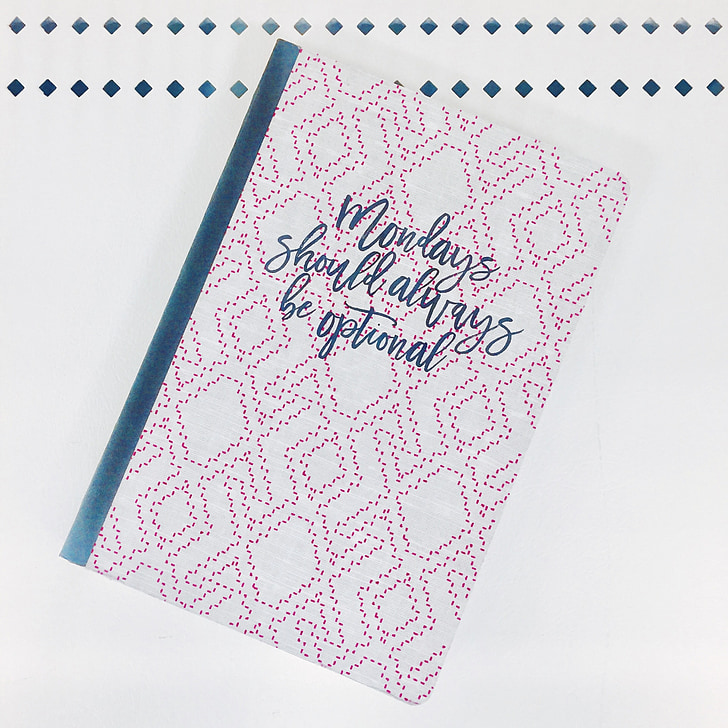 Mondays
should always
be optional